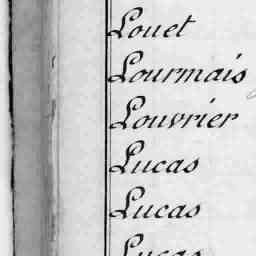 Louet
Lourmais
Louvrier
Lucas
Lucas
Lucas